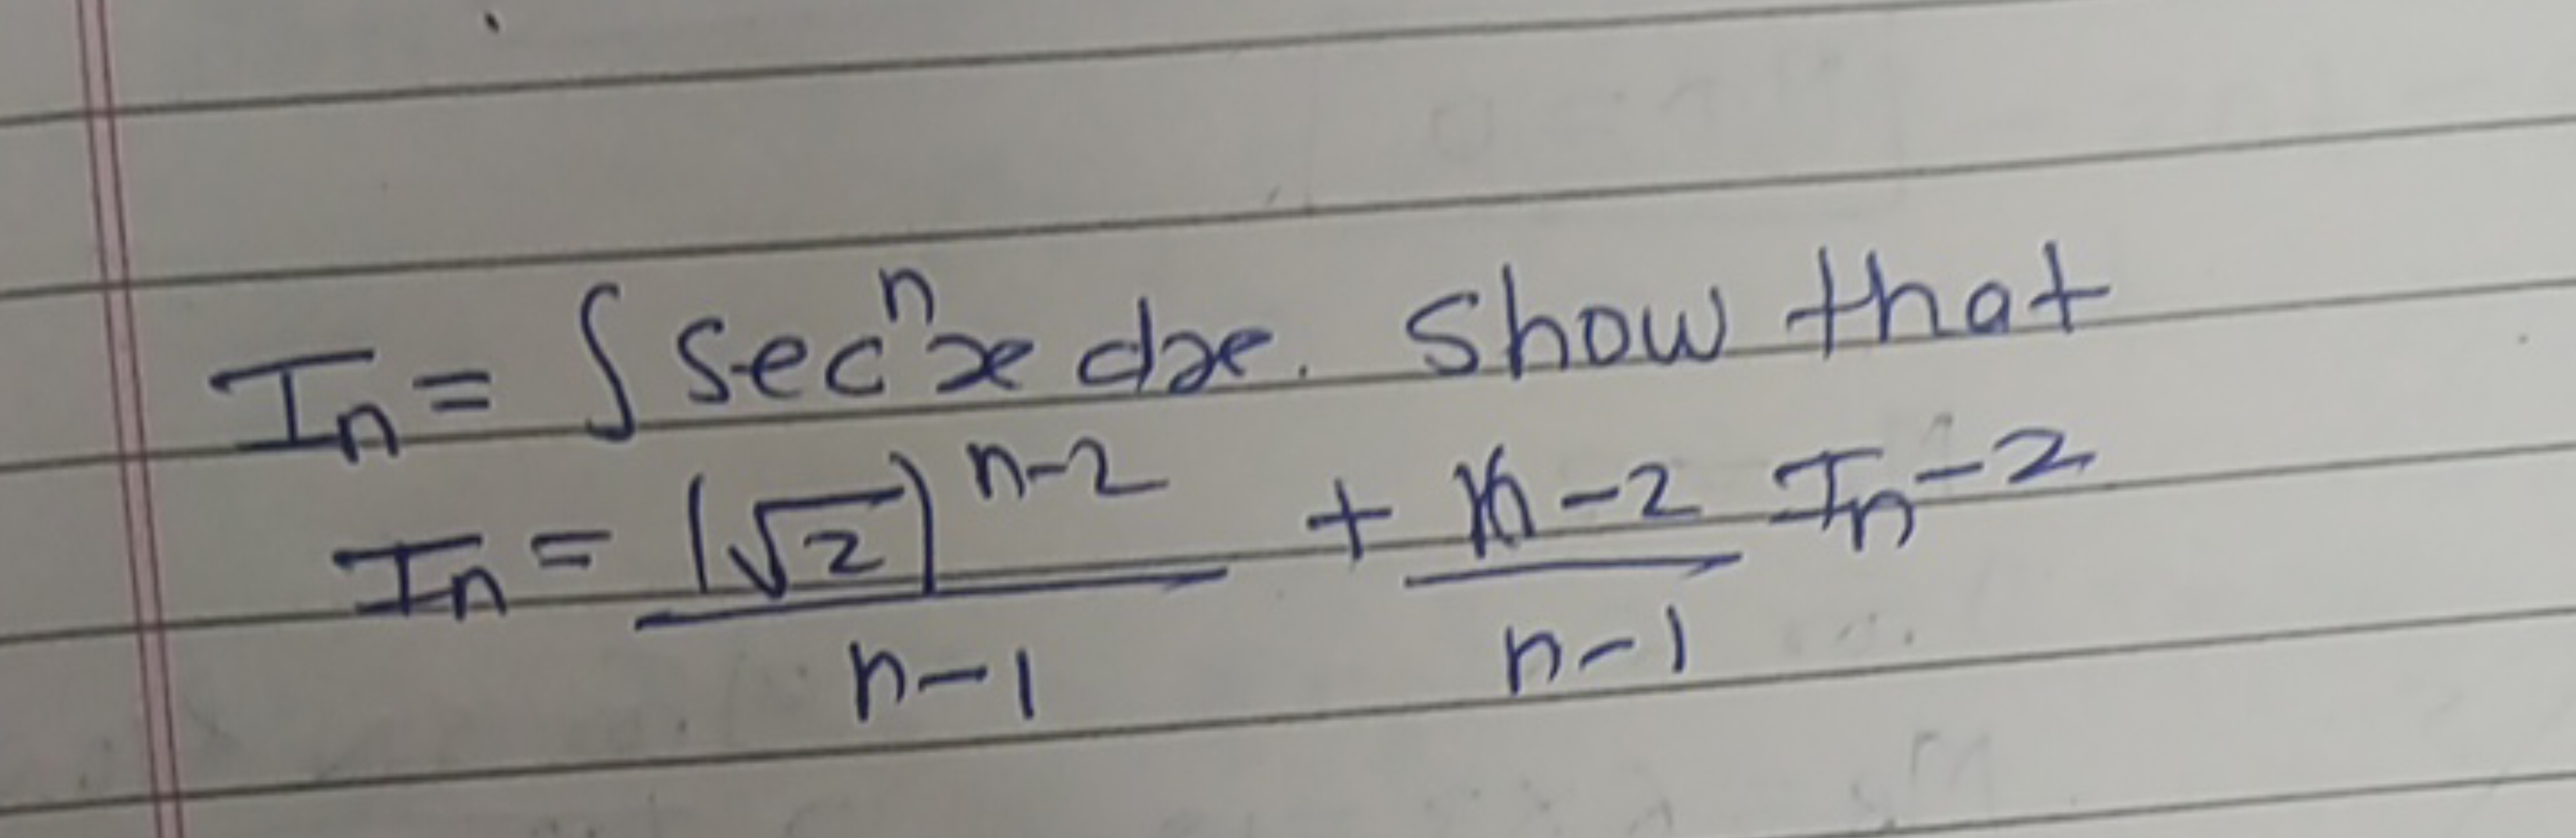 In = ∫ sec^n x dx. Show that
In = (√2)^(n-2) / (n-1) + (n-2) / (n-1) In-2